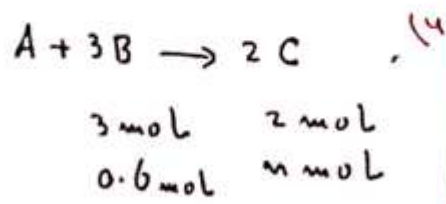 A + 3B → 2 C . (4
3 mol 2 mol
0.6 mol n mol